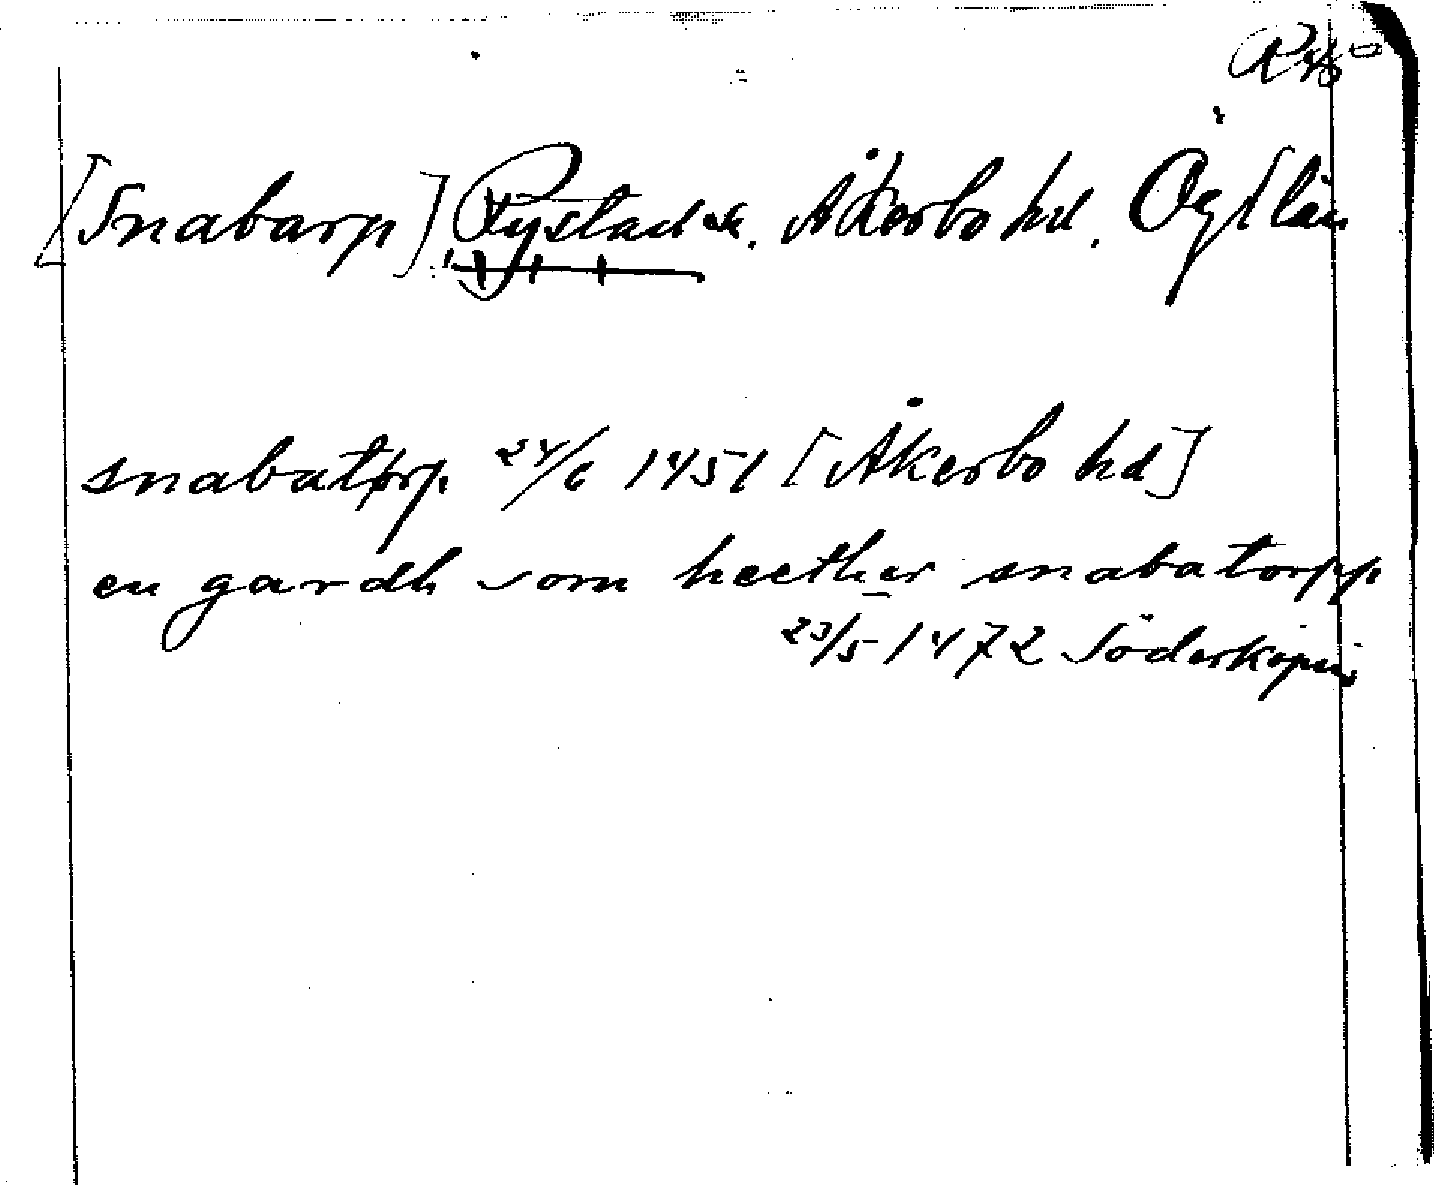 [Snabarp] Rystad sk. Åkerbo hd. Ög l län
snabatorp. 24/6 1451 [Åkerbo hd]
en gardh som heether snabatorpp
23/5 1472 Söderköping